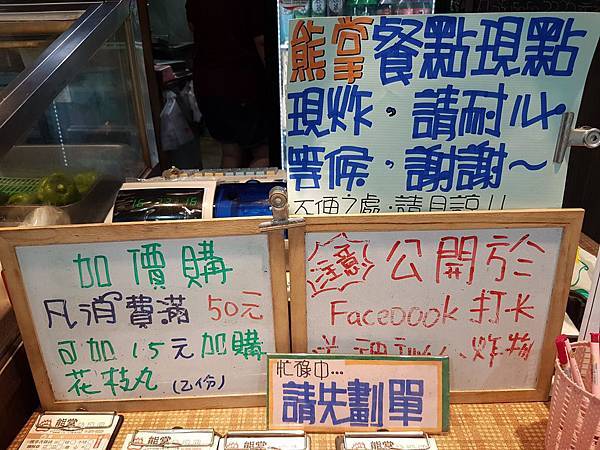 熊掌餐點現點
現炸,請耐心
等候,謝謝~
不便之處,請見諒!!
加價購
凡消費滿 50元
可加15元加購
花枝丸(乙份)
注意 公開於
Facebook 打卡
炸物
忙碌中...
請先劃單
熊掌
熊掌
熊掌